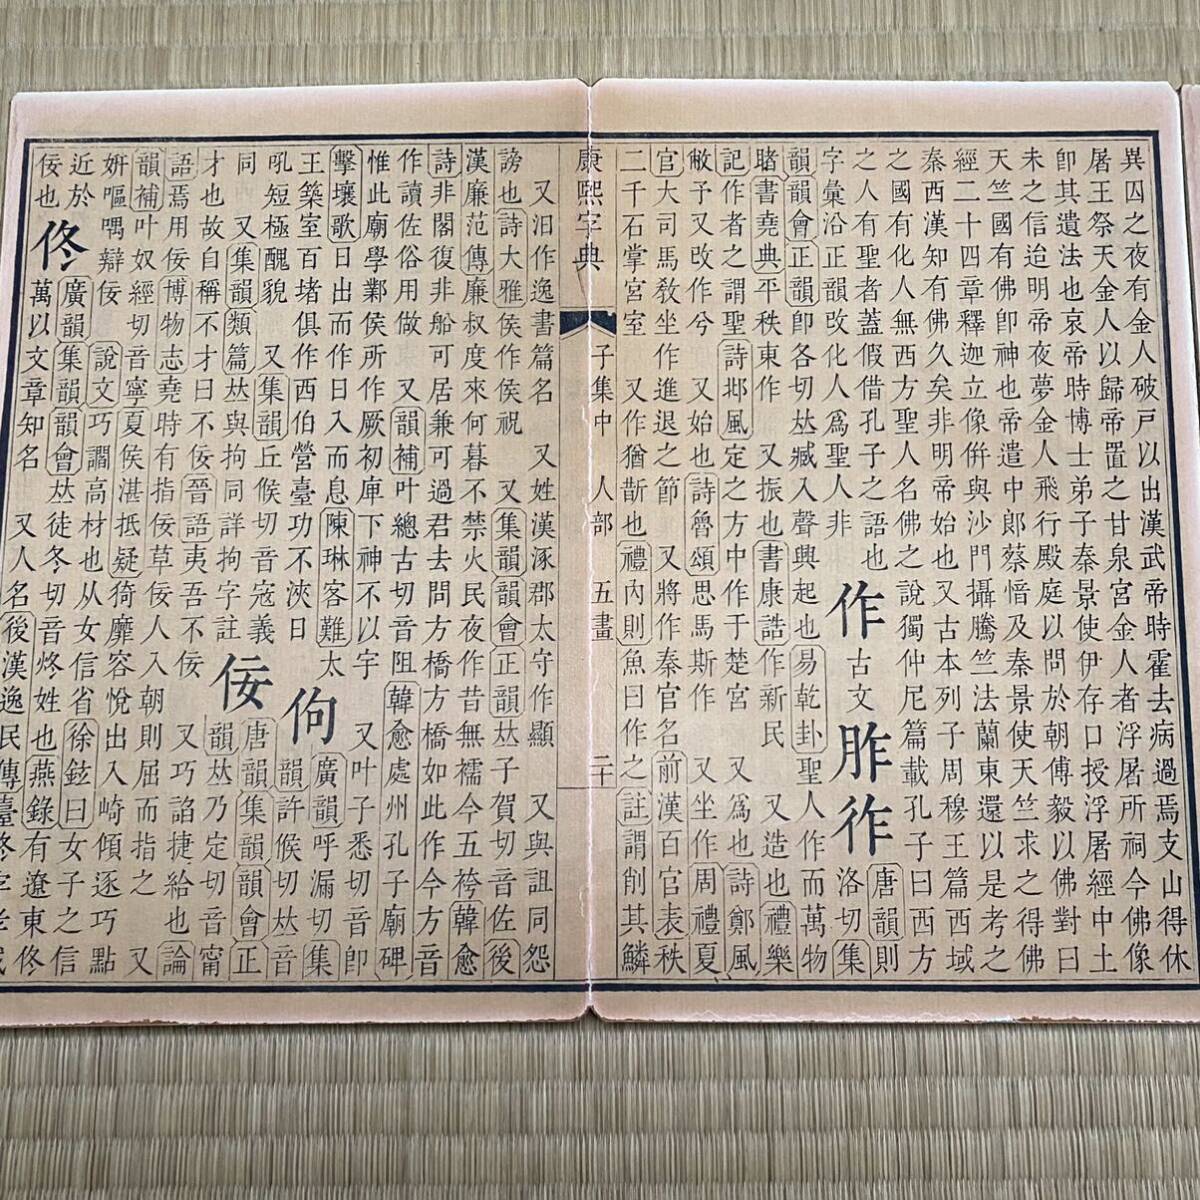 異囚之夜有金人破戸以出漢武帝時霍去病過焉支山得休
屠王祭天金人以歸帝置之甘泉宮金人者浮屠所祠今佛像
卽其遺法也哀帝時博士弟子秦景使伊存口授浮屠經中土
未之信迨明帝夜夢金人飛行殿庭以問於朝傅毅以佛對曰
天竺國有佛卽神也帝遣中郞蔡愔及秦景使天竺求之得佛
經二十四章釋迦立像倂與沙門攝騰竺法蘭東還以是考之
秦西漢知有佛久矣非明帝始也又古本列子周穆王篇西域
之國有化人無西方聖人名佛之說獨仲尼篇載孔子曰西方
之人有聖者蓋假借孔子之語也
字彙沿正韻改化人爲聖人非
作 古文 胙𢓓 唐韻則
洛切集
韻韻會正韻卽各切𠀤臧入聲興起也易乾卦聖人作而萬物
睹書堯典平秩東作 又振也書康誥作新民 又造也禮樂
記作者之謂聖詩邶風定之方中作于楚宮 又爲也詩鄭風
敝予又改作兮 又始也詩魯頌思馬斯作 又坐作周禮夏
官大司馬敎坐作進退之節 又將作秦官名前漢百官表秩
二千石掌宮室 又作猶斮也禮內則魚曰作之註謂削其鱗
康熙字典 子集中 人部 五畫 二十
又汨作逸書篇名 又姓漢涿郡太守作顯 又與詛同怨
謗也詩大雅侯作侯祝 又集韻韻會正韻𠀤子賀切音佐後
漢廉范傳廉叔度來何暮不禁火民夜作昔無襦今五袴韓愈
詩非閣復非船可居兼可過君去問方橋方橋如此作今方音
作讀佐俗用做 又韻補叶總古切音阻韓愈處州孔子廟碑
惟此廟學鄴侯所作厥初庫下神不以宇 又叶子悉切音卽
擊壤歌日出而作日入而息陳琳客難太
王築室百堵俱作西伯營臺功不浹日
佝 廣韻呼漏切集
韻許候切𠀤音
吼短極醜貌 又集韻丘候切音宼義
同 又集韻類篇𠀤與拘同詳拘字註
佞 唐韻集韻韻會正
韻𠀤乃定切音甯
才也故自稱不才曰不佞晉語夷吾不佞 又巧諂捷給也論
語焉用佞博物志堯時有指佞草佞人入朝則屈而指之 又
韻補叶奴經切音寧夏侯湛抵疑猗靡容悅出入崎傾逐巧點
姸嘔喁辯佞 說文巧讇高材也从女信省徐鉉曰女子之信
近於
佞也
佟 廣韻集韻韻會𠀤徒冬切音炵姓也燕錄有遼東佟
萬以文章知名 又人名後漢逸民傳臺佟字孝威